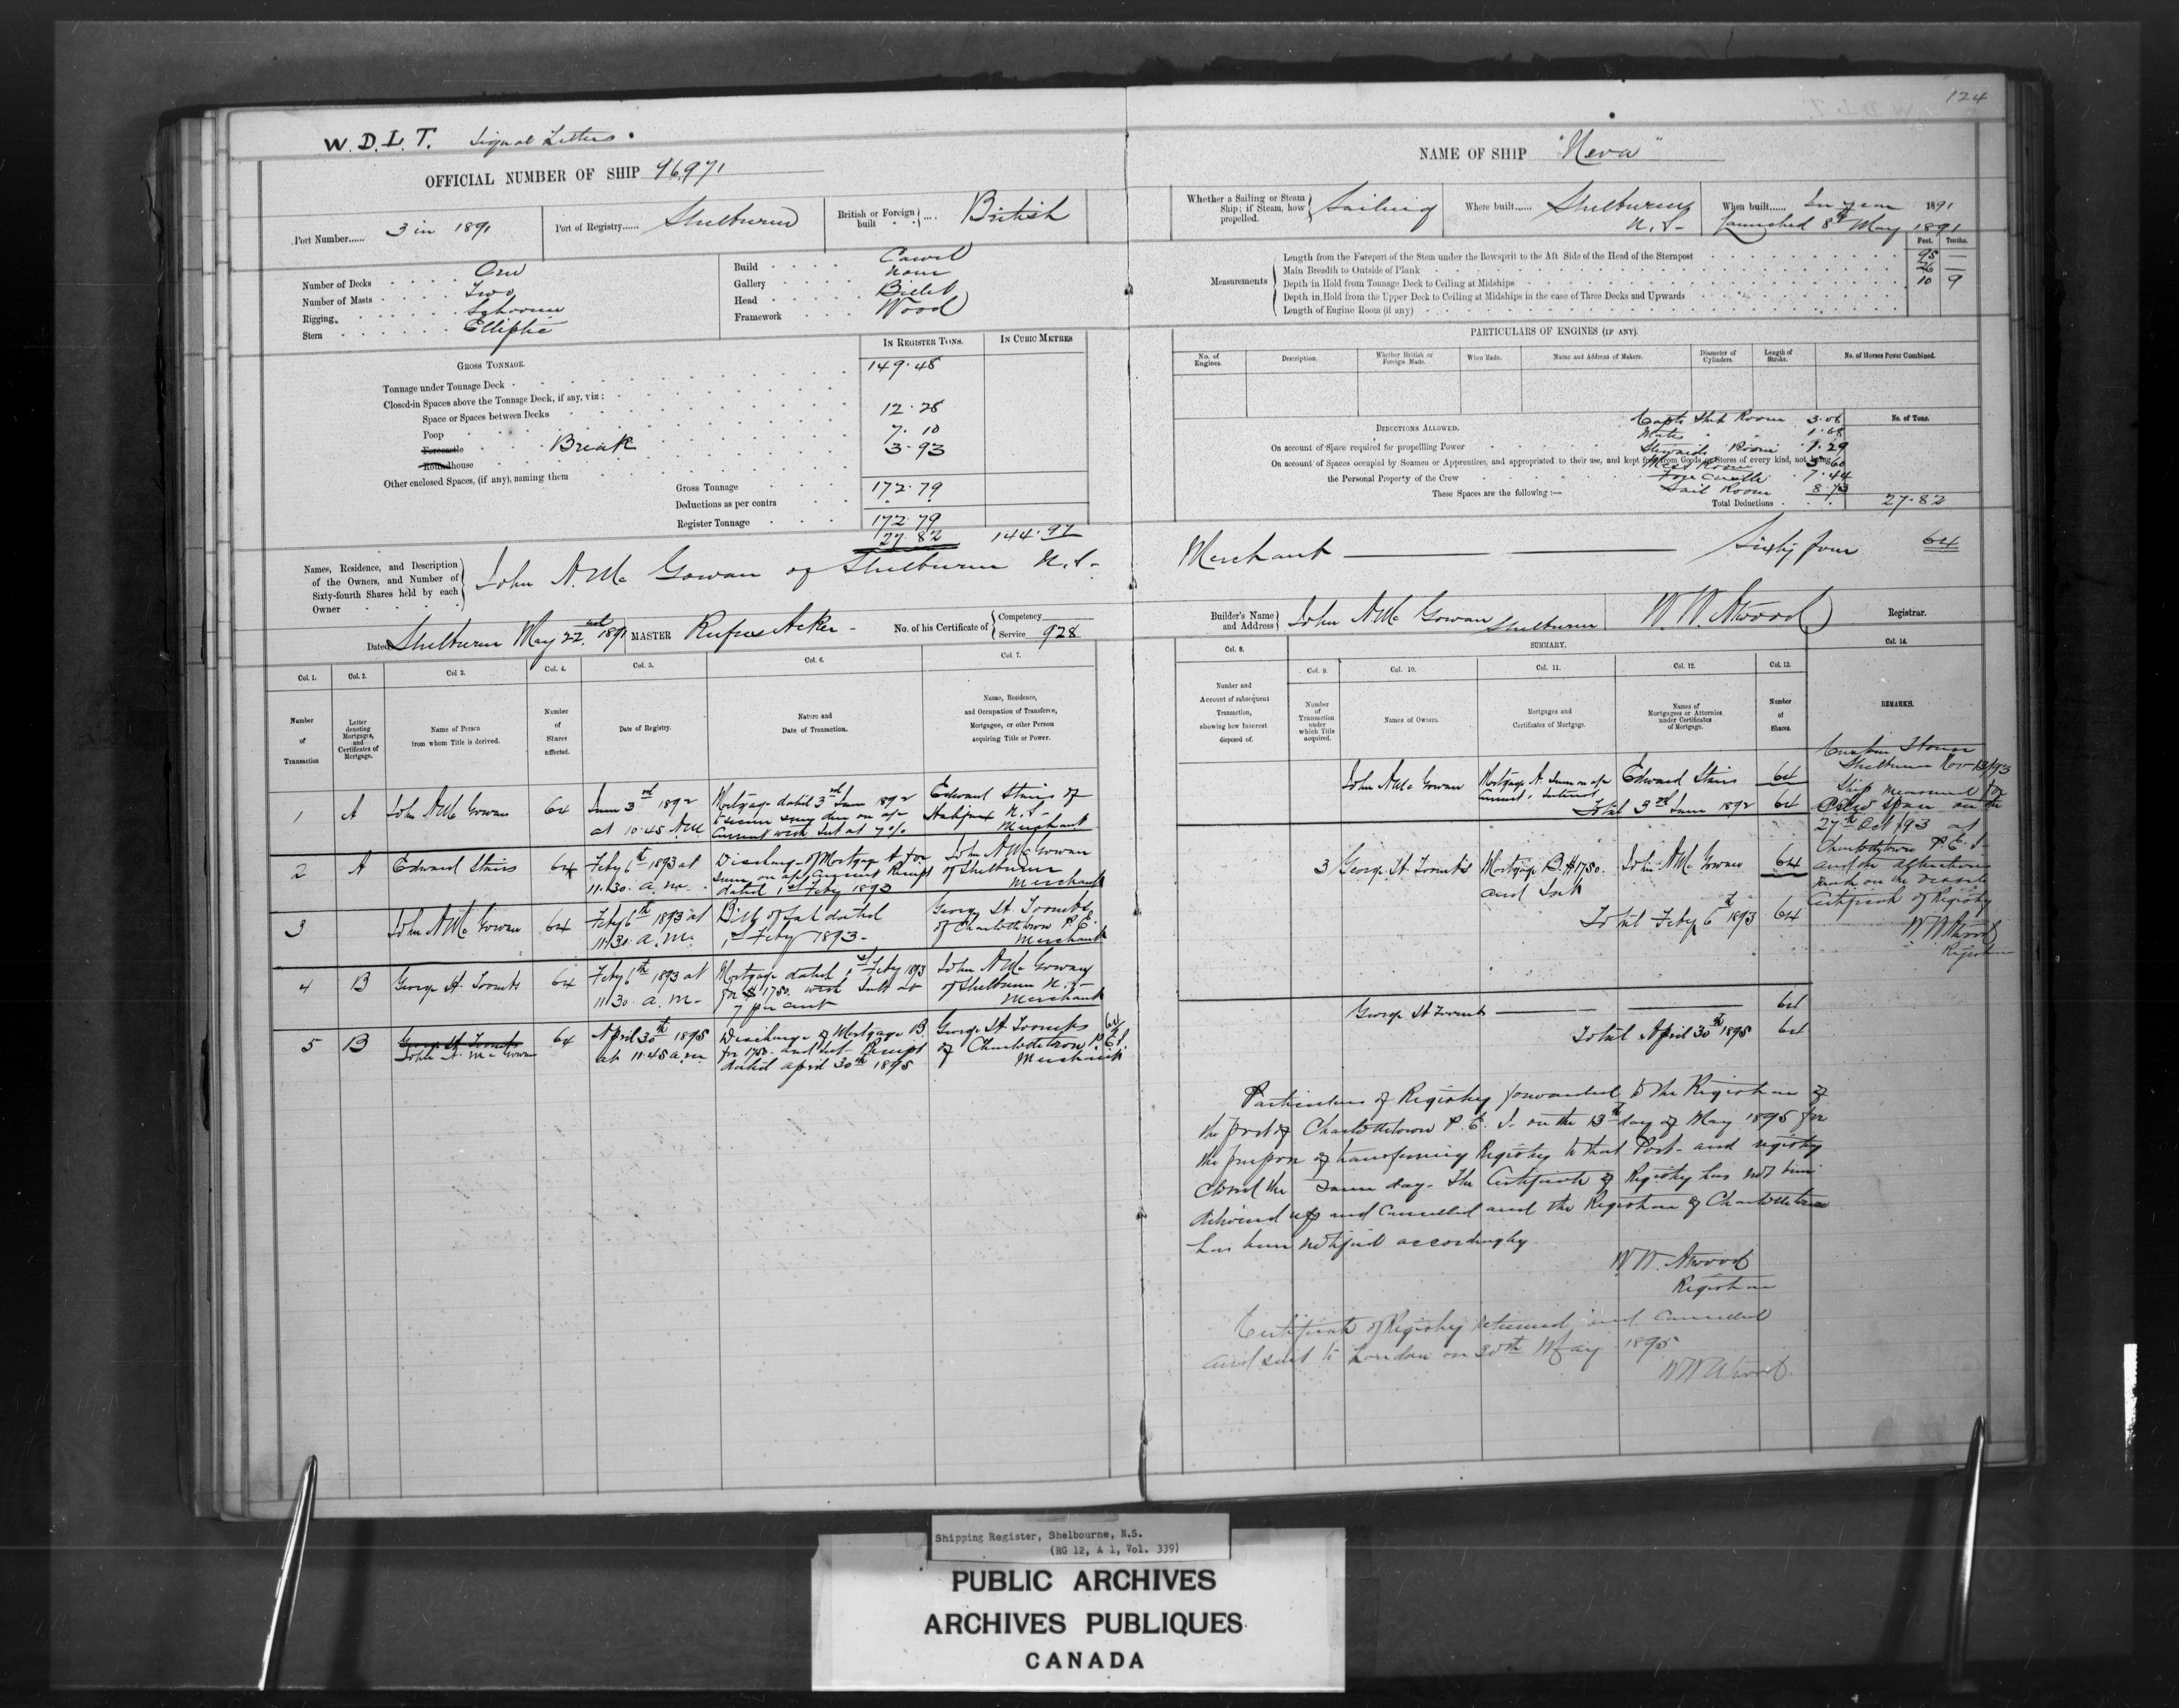 124
W. D. L. T. Signal Letters
OFFICIAL NUMBER OF SHIP 96,971
Port Number...... 3 in 1891
Port of Registry...... Shelburne
British or Foreign built .... British
Number of Decks One
Number of Masts Two
Rigging Schooner
Stern Elliptic
Build Carvel
Gallery None
Head Billet
Framework Wood
IN REGISTER TONS. IN CUBIC METRES
GROSS TONNAGE.
Tonnage under Tonnage Deck 149.48
Closed-in Spaces above the Tonnage Deck, if any, viz:
Space or Spaces between Decks 12.28
Poop 7.10
Forecastle Break 3.93
Roundhouse
Other enclosed Spaces, (if any), naming them
Gross Tonnage 172.79
Deductions as per contra
Register Tonnage 172.79
27.82 144.97
Names, Residence, and Description
of the Owners, and Number of
Sixty-fourth Shares held by each
Owner
John A. Mc Gowan of Shelburne N.S.
Dated Shelburne May 22nd 1891 MASTER Rufus Acker No. of his Certificate of Competency
Service 928
Col. 1. Col. 2. Col 3. Col. 4. Col. 5. Col. 6. Col. 7.
Number of Transaction
Letter denoting Mortgages, and Certificates of Mortgage.
Name of Person from whom Title is derived.
Number of Shares affected.
Date of Registry.
Nature and Date of Transaction.
Name, Residence, and Occupation of Transferee, Mortgagee, or other Person acquiring Title or Power.
1 A John A Mc Gowan 64 June 3rd 1892 Mortgage dated 3rd June 1892 Edward Stairs of
at 10.45 AM to secure sum due on a/c Halifax N.S.
Current with Int at 7% Merchant
2 A Edward Stairs 64 Feby 6th 1893 at Discharge of Mortgage A for John A Mc Gowan
11.30 a.m. sum on a/c Current Receipt of Shelburne
dated 1st Feby 1893 Merchant
3 John A Mc Gowan 64 Feby 6th 1893 at Bill of Sale dated George H. Toombs
11.30 a.m. 1st Feby 1893 of Charlottetown P.E.
Merchant
4 B George H. Toombs 64 Feby 6th 1893 at Mortgage dated 1st Feby 1893 John A Mc Gowan
11.30 a.m. for $1750. with Int at of Shelburne N.S.
7 per cent Merchant
5 B George H Toombs 64 April 30th 1895 Discharge of Mortgage B. George H Toombs 64
John A. Mc Gowan at 11.45 a.m. for 1750 and Int Receipt of Charlottetown P.E.I.
dated April 30th 1895 Merchant
NAME OF SHIP "Neva"
Whether a Sailing or Steam Ship; if Steam, how propelled. Sailing
Where built...... Shelburne N.S.
When built...... In year 1891
Launched 8th May 1891
Feet. Tenths.
Measurements
Length from the Forepart of the Stem under the Bowsprit to the Aft Side of the Head of the Sternpost 95 —
Main Breadth to Outside of Plank 26 —
Depth in Hold from Tonnage Deck to Ceiling at Midships 10 9
Depth in Hold from the Upper Deck to Ceiling at Midships in the case of Three Decks and Upwards
Length of Engine Room (if any)
PARTICULARS OF ENGINES (IF ANY).
No. of Engines. Description. Whether British or Foreign Made. When Made. Name and Address of Makers. Diameter of Cylinders. Length of Stroke. No. of Horses Power Combined.
DEDUCTIONS ALLOWED. No. of Tons.
On account of Space required for propelling Power
On account of Spaces occupied by Seamen or Apprentices, and appropriated to their use, and kept free from Goods or Stores of every kind, not being
the Personal Property of the Crew
These Spaces are the following:—
Room 3.06
Mates 1.68
Stewards Room 1.29
Mess Room 5.60
7.44
Sail Room 8.73
Total Deductions 27.82
Merchant Sixty four 64
Builder's Name and Address John A Mc Gowan Shelburne W. W. Atwood Registrar.
Col. 8. SUMMARY. Col. 14.
Col. 9. Col. 10. Col. 11. Col. 12. Col. 13.
Number and Account of subsequent Transaction, showing how Interest disposed of.
Number of Transaction under which Title acquired.
Names of Owners.
Mortgages and Certificates of Mortgage.
Names of Mortgagees or Attornies under Certificates of Mortgage.
Number of Shares.
REMARKS.
John A Mc Gowan Mortgage A. Sum on a/c Edward Stairs 64
Current & Interest
Total 3rd June 1892 64
3 George H. Toombs Mortgage B $1750. John A Mc Gowan 64
and Int
Total Feby 6th 1893 64
George H Toombs 64
Total April 30th 1895 64
Custom House
Shelburne Nov 13/93
Ship measured for
Crew space on the
27th Oct /93 at
Charlottetown P.E.I.
and the alteration
made on the vessels
Certificate of Registry
W W Atwood
Registrar
Particulars of Registry forwarded to the Registrar of
the port of Charlottetown P.E.I. on the 13th day of May 1895 for
the purpose of transferring Registry to that Port and registry
closed the same day. The Certificate of Registry has not been
delivered up and Cancelled and the Registrar of Charlottetown
has been notified accordingly
W. W. Atwood
Registrar
Certificate of Registry returned and Cancelled
and sent to London on 30th May 1895
W W Atwood
Shipping Register, Shelbourne, N.S.
(RG 12, A 1, Vol. 339)
PUBLIC ARCHIVES
ARCHIVES PUBLIQUES
CANADA